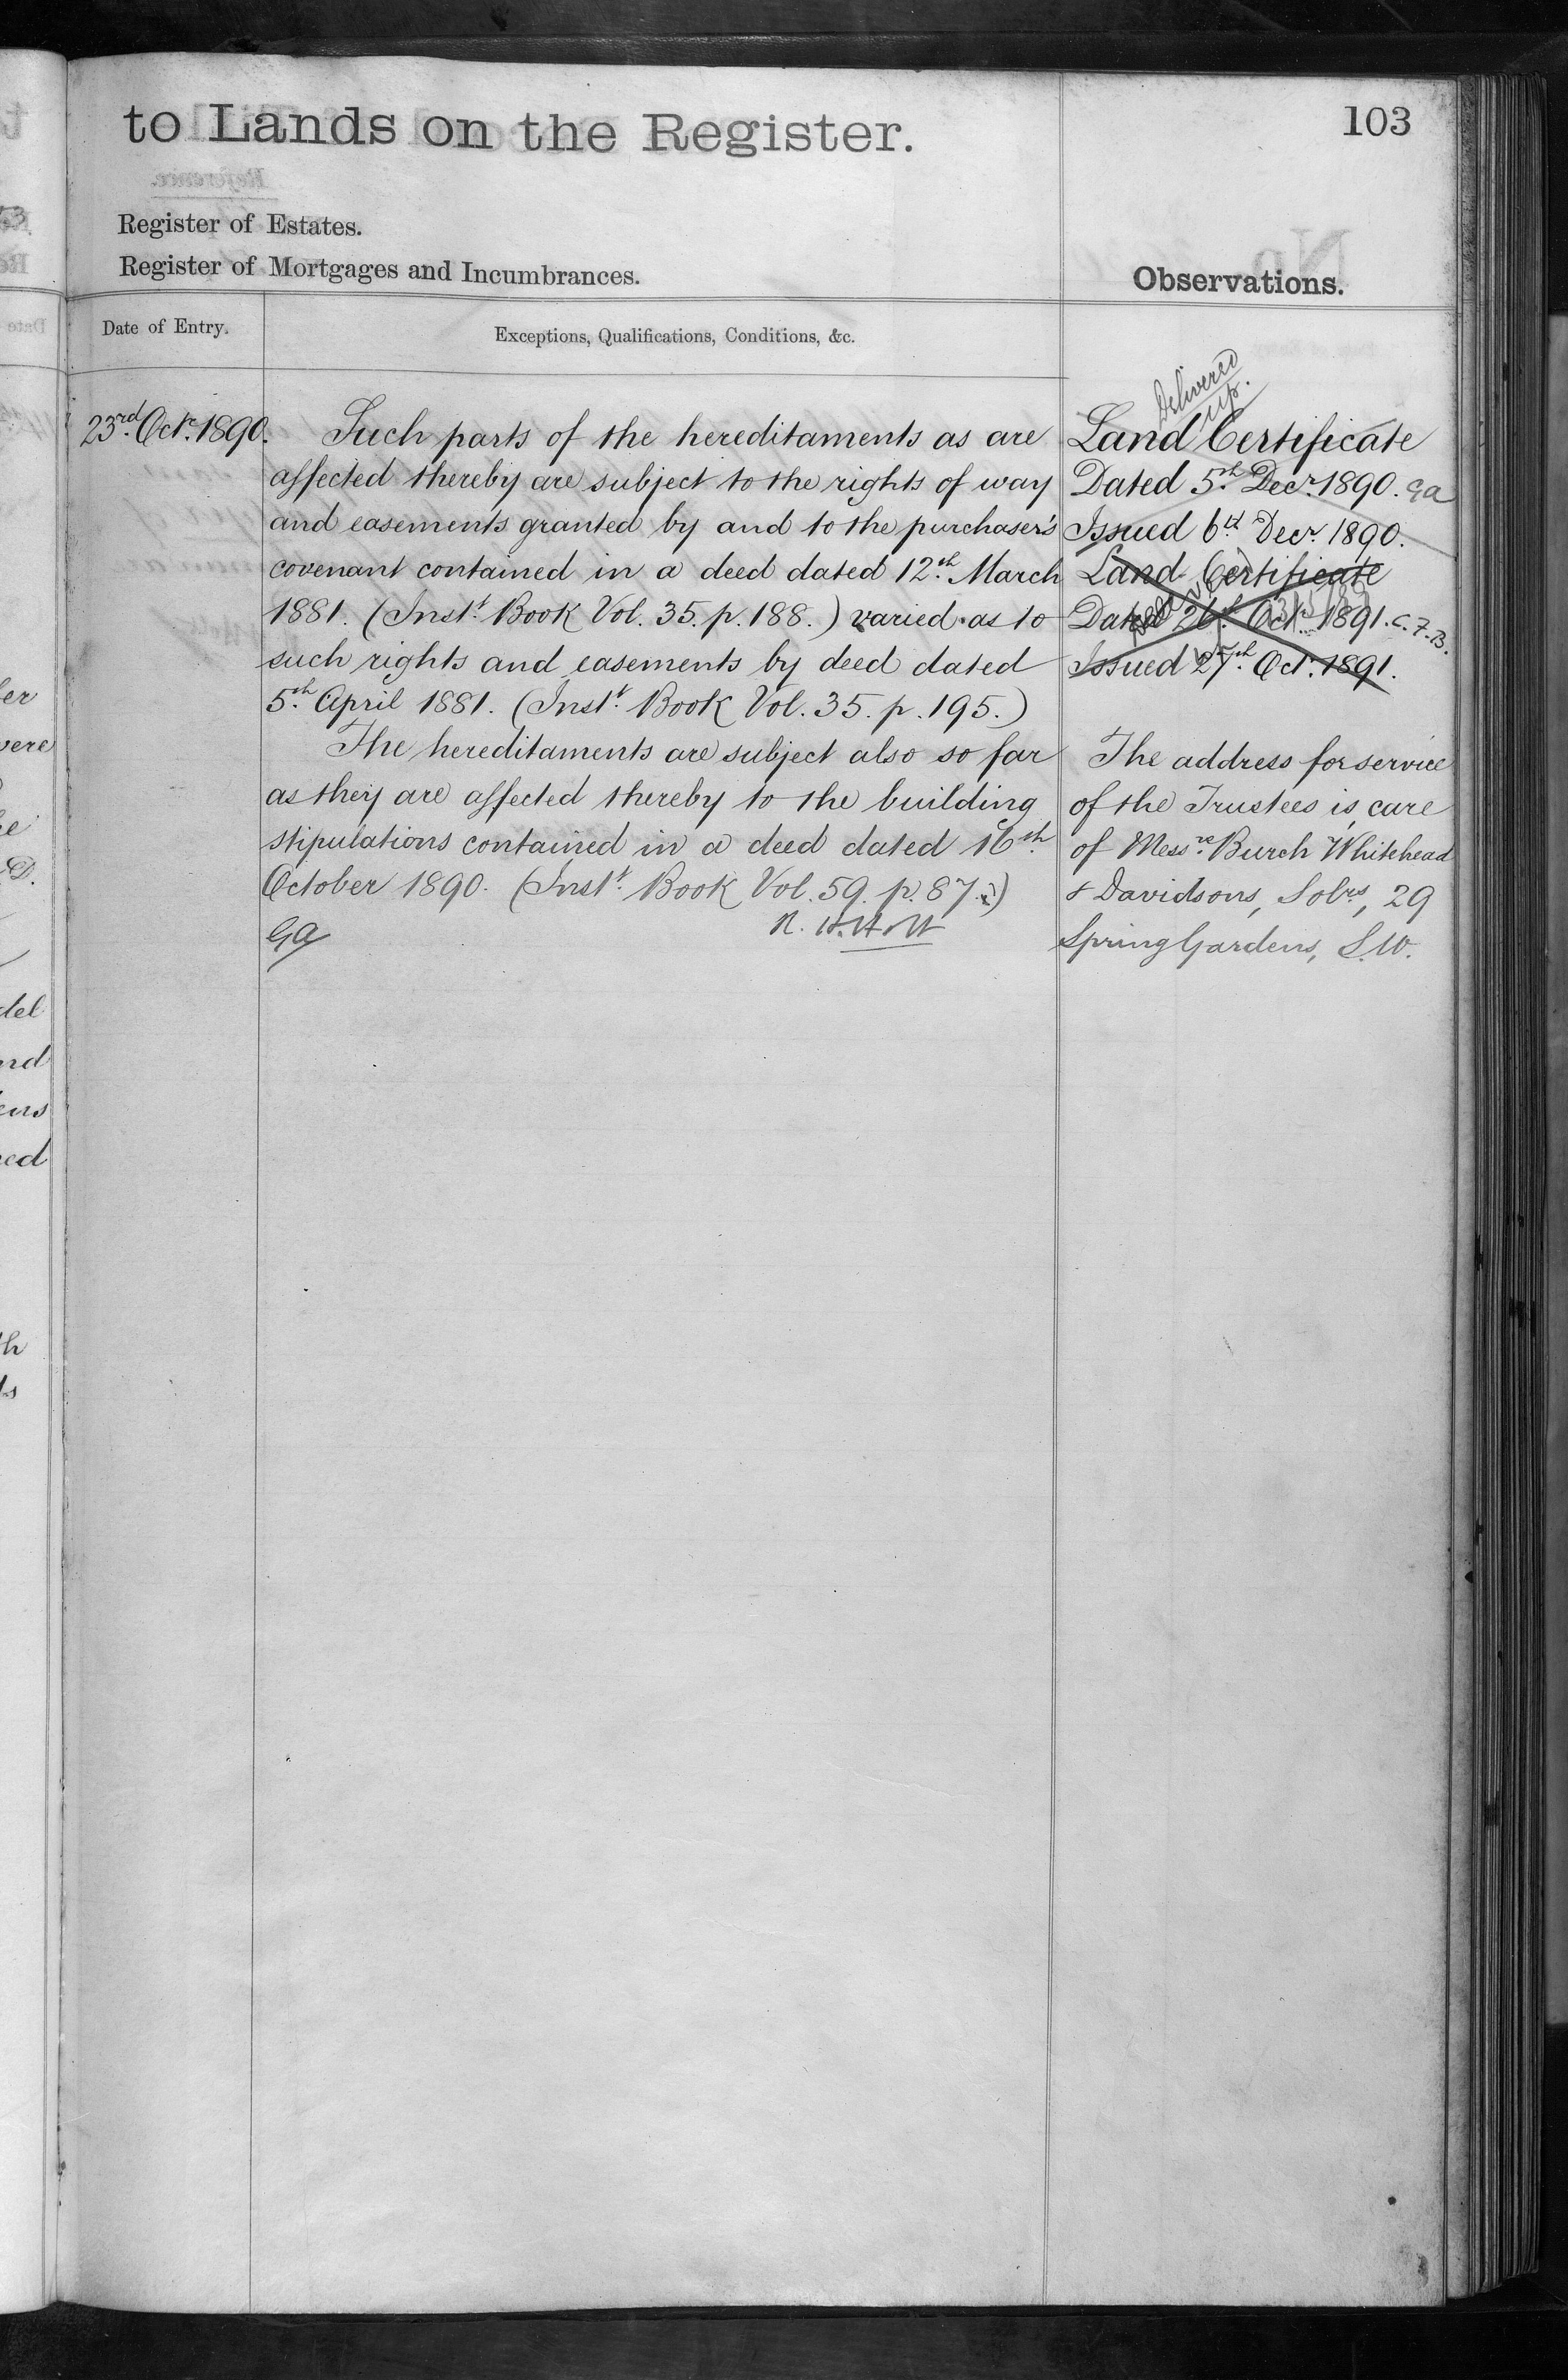 to Lands on the Register.
103
Register of Estates.
Register of Mortgages and Incumbrances.
Observations.
Date of Entry.
Exceptions, Qualifications, Conditions, &c.
23rd Octr. 1890.
Such parts of the hereditaments as are
affected thereby are subject to the rights of way
and easements granted by and to the purchaser's
covenant contained in a deed dated 12th March
1881. (Inst. Book Vol. 35. p. 188.) varied as to
such rights and easements by deed dated
5th April 1881. (Inst. Book Vol. 35. p. 195.)
The hereditaments are subject also so far
as they are affected thereby to the building
stipulations contained in a deed dated 16th
October 1890. (Inst. Book Vol. 59. p. 87.)
GA
Delivered
up.
Land Certificate
Dated 5th Decr. 1890. GA
Issued 6th Decr. 1890.
Land Certificate
Dated 26th Octr. 1891. C.F.B.
Issued 27th Octr. 1891.
The address for service
of the Trustees is, care
of Messrs Burch Whitehead
& Davidsons, Solrs, 29
Spring Gardens, S.W.